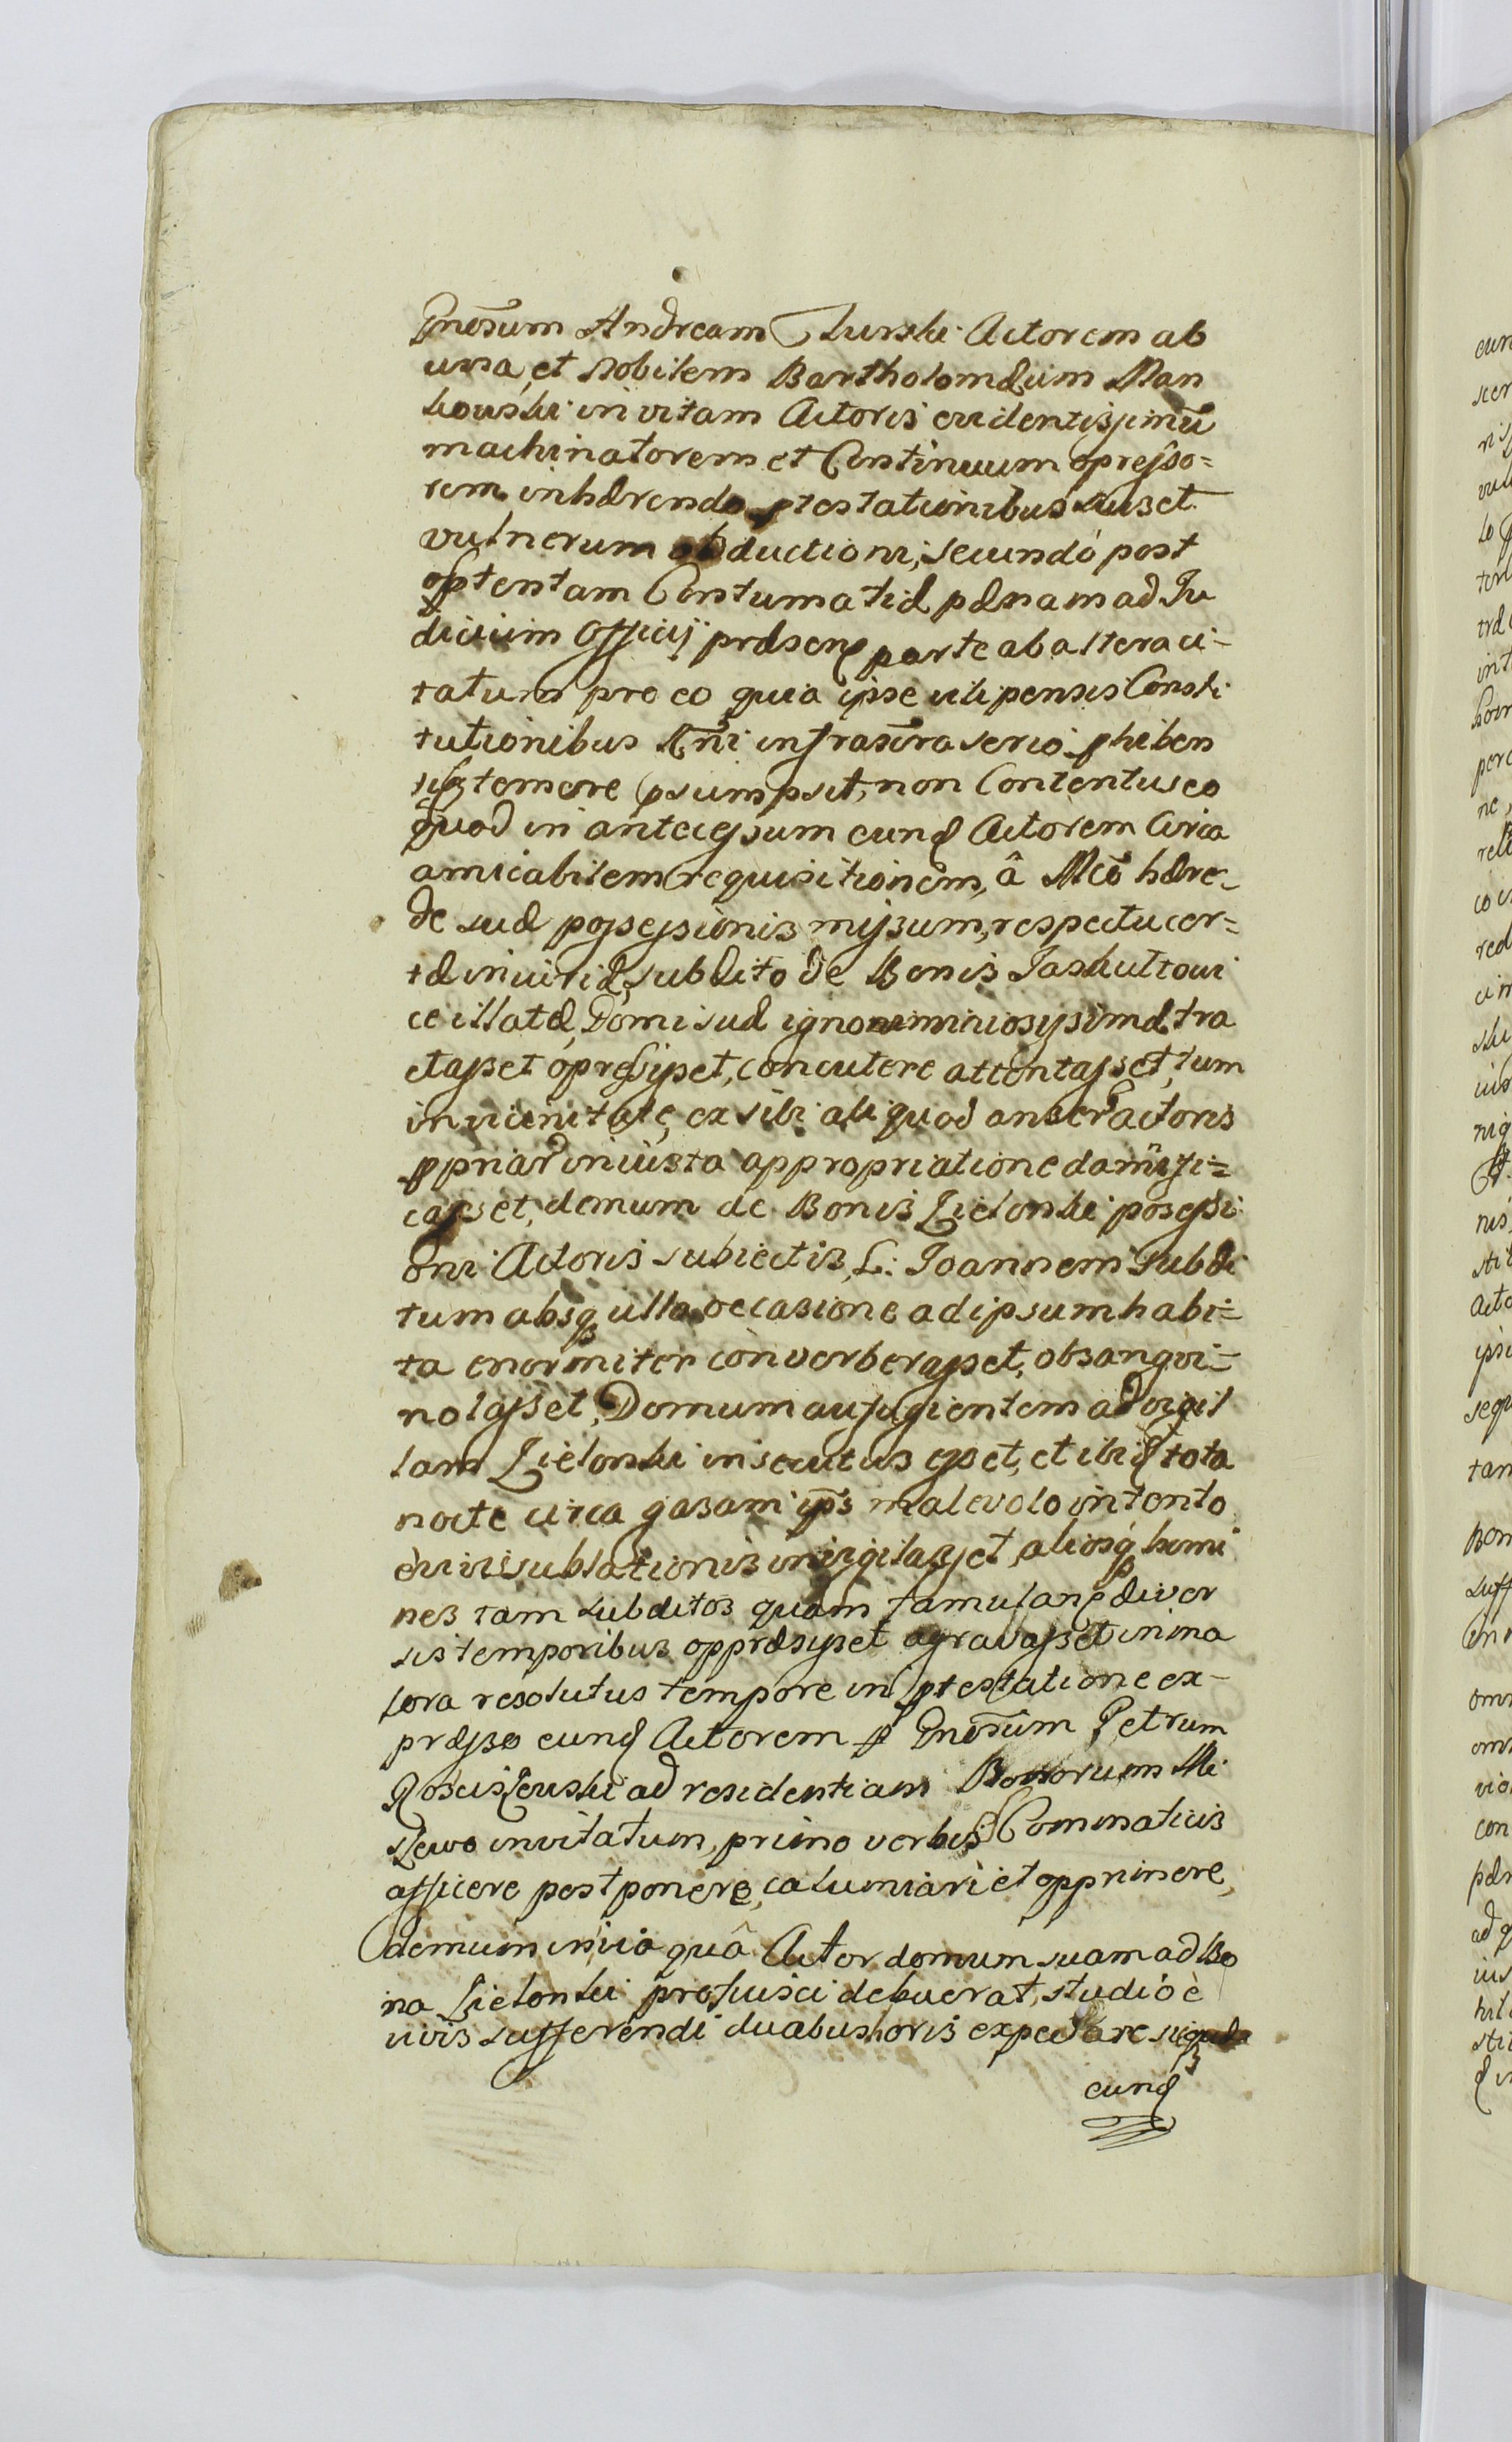 Gnosum Andream Turski Actorem ab
una, et Nobilem Bartholomæum Man
kowski in vitam Actoris evidentissimū
machinatorem et Continuum opresso=
rem inhærendo ptestationibus suis et
vulnerum obductioni, secundó post
optentam Contumatiæ pænam ad Ju
dicium Officij præsenς parte ab altera ci-
tatum pro eo quia ipse vilipensis Consti
tutionibus Rni infrascra serio phiben
tibꝫ temere psumpsit, non Contentus eo
quod in antecessum eunđ Actorem Circa
amicabilem requisitionem, â Mco hære-
de suæ possessionis missum, respectu cer=
tæ iniuriæ, subdito de Bonis Jaskultowi
ce illatæ, Domi suæ ignominiosissimæ tra
ctasset ópressisset, concutere attentasset, tum
in vicinitate, ex sibi aliquod anser Actoris
ppriar iniusta appropriatione damnifi=
casset, demum de Bonis Zielonki posessi
oni Actoris subiectis, L: Joannem Subdi
tum absqꝫ ulla occasione ad ipsum habi=
ta enormiter converberasset, obsangvi-
nolasset, Domum aufugientem ad vigil
lam Zielonki insecutus esset, et ibiđ tota
nocte circa gasam ips malevolo intento
è vivis sublationis invigilasset, aliosqꝫ homi
nes tam subditos quam famulanς diver
sis temporibus oppræsisset agravasset in ma
lora resolutus tempore in ptestatione ex-
præsso eunđ Actorem p Gnosum Petrum
Rosciszewski ad residentiam Bonorum Mi
szewo invitatum, primo verbis Comminaticis
afficere postponere, calumniari et opprimere,
demum in via quâ Actor domum suam ad Bo
na Zielonki proficisci debuerat, studio è
vivis sufferendi duabus horis expectare
eunđ